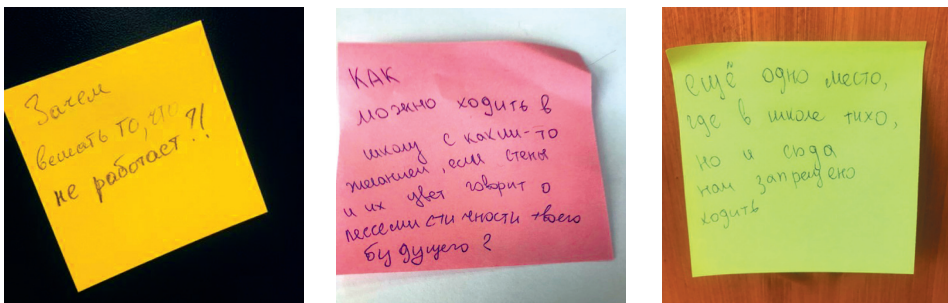 Зачем
вешать то, что
не работает?!
КАК
можно ходить в
школу с каким-то
желанием, если стены
и их цвет говорит о
пессемистичности твоего
будущего?
ещё одно место,
где в школе тихо,
но и сюда
нам запрещено
ходить